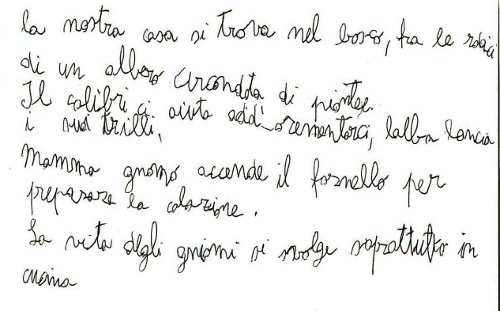 la nostra casa si trova nel bosco, fra le radici
di un albero circondata di piante.
Il colibrì ci aiuta add
i suoi trilli, l'alba lancia
mamma gnomo accende il fornello per
preparare la colazione.
La vita degli gniomi si svolge soprattutto in
cucina